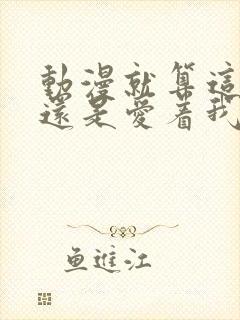 動漫就算這
還是愛着我
鱼進江